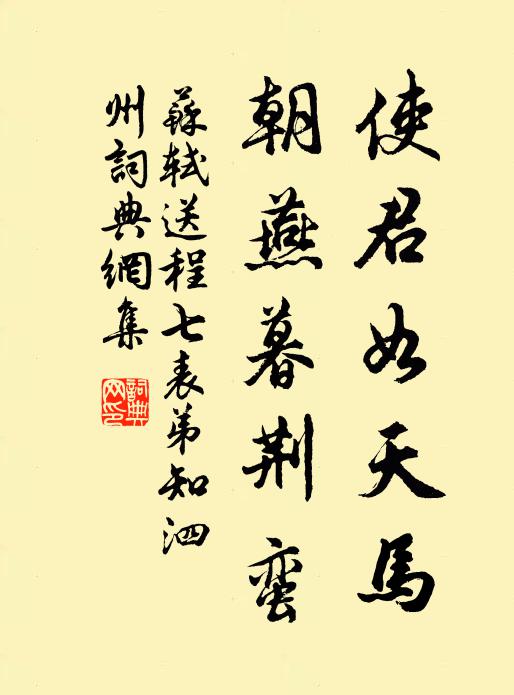 使君如天馬
朝燕暮荆蛮
蘇軾送程七表弟知泗
州詞典網集
詞典
网印